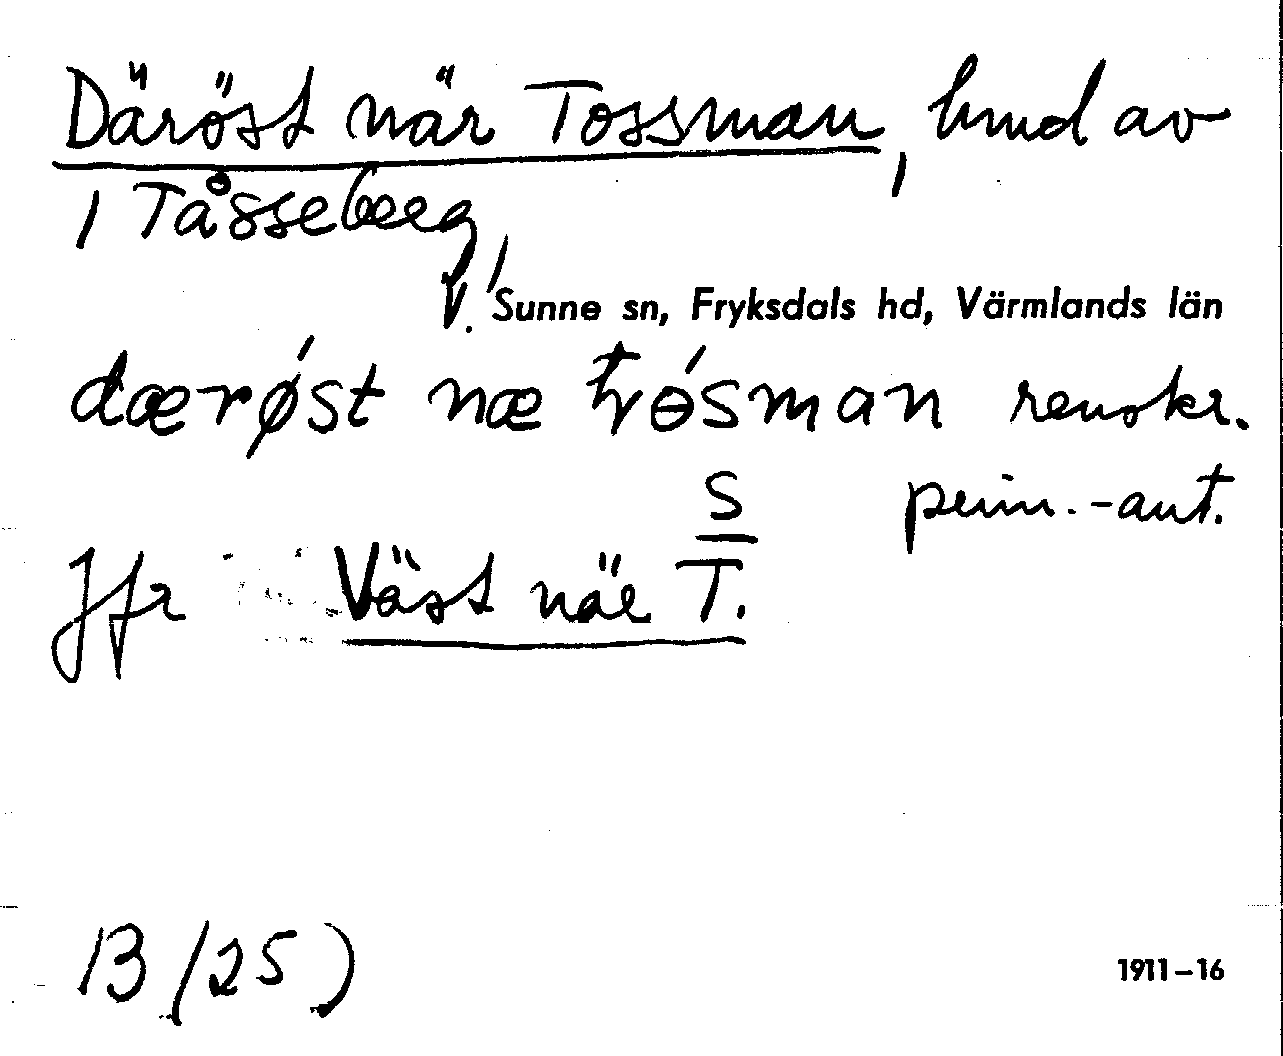 Däröst när Tossman, hmd av
i Tåsseberg,
V. Sunne sn, Fryksdals hd, Värmlands län
dærǿst næ tɵ́sman renskr.
S prim.-ant.
Jfr Väst när T.
B (25)
1911–16